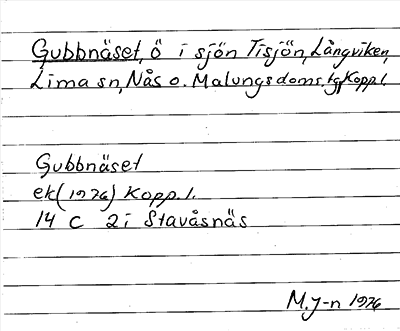 Gubbnäset, ö i sjön Tisjön, Långviken,
Lima sn, Nås o. Malungs doms. tg, Kopp. l.
Gubbnäset
ek (1976) Kopp. l.
14 C 2i Stavåsnäs
M. J-n 1976